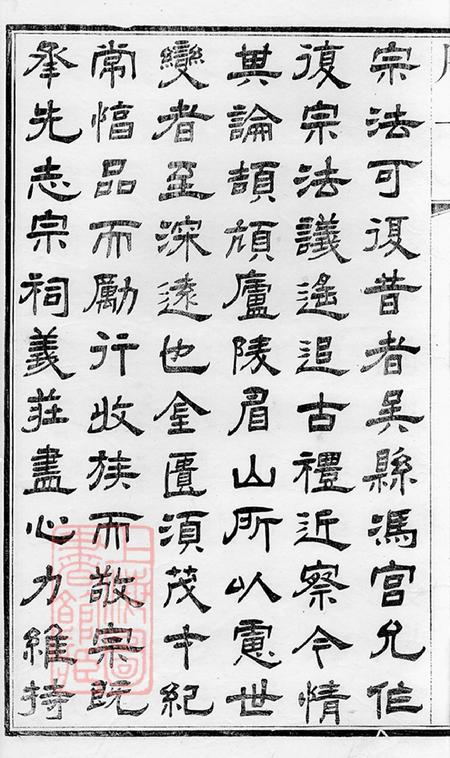 宗法可復昔者吳縣馮宮允作
復宗法議遙追古禮近察今情
其論頡頏廬陵眉山所以慮世
變者至深遠也金匱須茂才紀
常惇品而勵行收族而敬宗既
承先志宗祠義莊盡心力維持